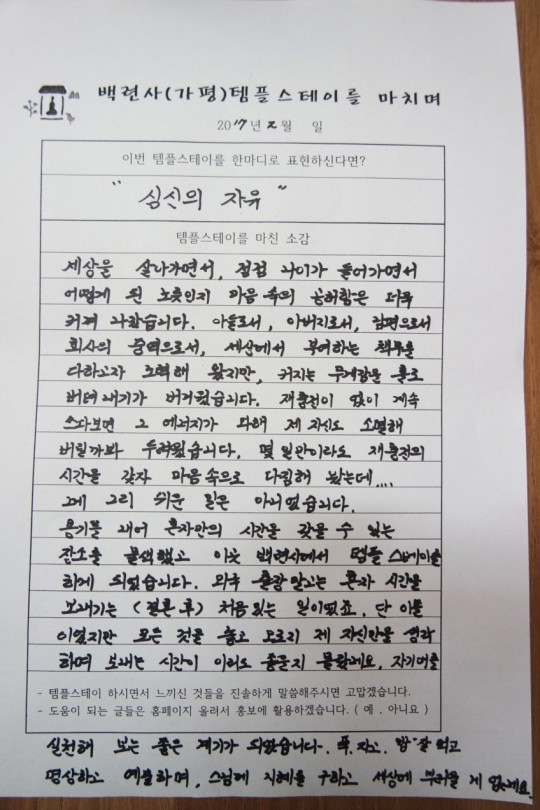 백련사(가평)템플스테이를 마치며
2017년 2월 일
이번 템플스테이를 한마디로 표현하신다면?
"심신의 자유"
템플스테이를 마친 소감
세상을 살아가면서, 점점 나이가 들어가면서
어떻게 된 노릇인지 마음 속의 공허함은 더욱
커져 나갔습니다. 아들로서, 아버지로서, 남편으로서
회사의 중역으로서, 세상에서 부여하는 책무를
다하고자 노력해 왔지만, 커지는 무게감을 홀로
버텨내기가 버거웠습니다. 재충전이 없이 계속
쓰다보면 그 에너지가 다해 제 자신도 소멸해
버릴까봐 두려웠습니다. 몇 일만이라도 재충전의
시간을 갖자 마음속으로 다짐해 놨는데....
그게 그리 쉬운 일은 아니었습니다.
용기를 내어 혼자만의 시간을 갖을 수 있는
장소를 물색했고 이곳 백련사에서 템플 스테이를
하게 되었습니다. 외국 출장 말고는 혼자 시간을
보내기는 (결혼 후) 처음 있는 일이였죠. 단 이틀
이였지만 모든 것을 놓고 오로지 제 자신만을 생각
하며 보내는 시간이 이리도 좋을지 몰랐네요. 자기애를
- 템플스테이 하시면서 느끼신 것들을 진솔하게 말씀해주시면 고맙겠습니다.
- 도움이 되는 글들은 홈페이지 올려서 홍보에 활용하겠습니다. ( 예 . 아니요 )
실천해 보는 좋은 계기가 되었습니다. 푹 자고, 밥 잘 먹고
명상하고 예불하며, 스님께 지혜를 구하고 세상에 부러울 게 없네요.